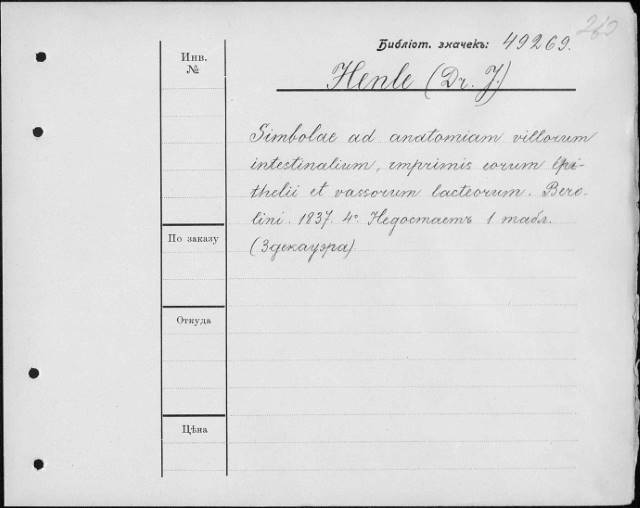 260
Библіот. значекъ: 49269.
Инв.
№
Henle (Dr. J.)
Simbolae ad anatomiam villorum
intestinalium, imprimis eorum Epi-
thelii et vassorum lacteorum. Bero-
lini. 1837. 4° Недостаетъ 1 табл.
(Здекауэра)
По заказу
Откуда
Цѣна